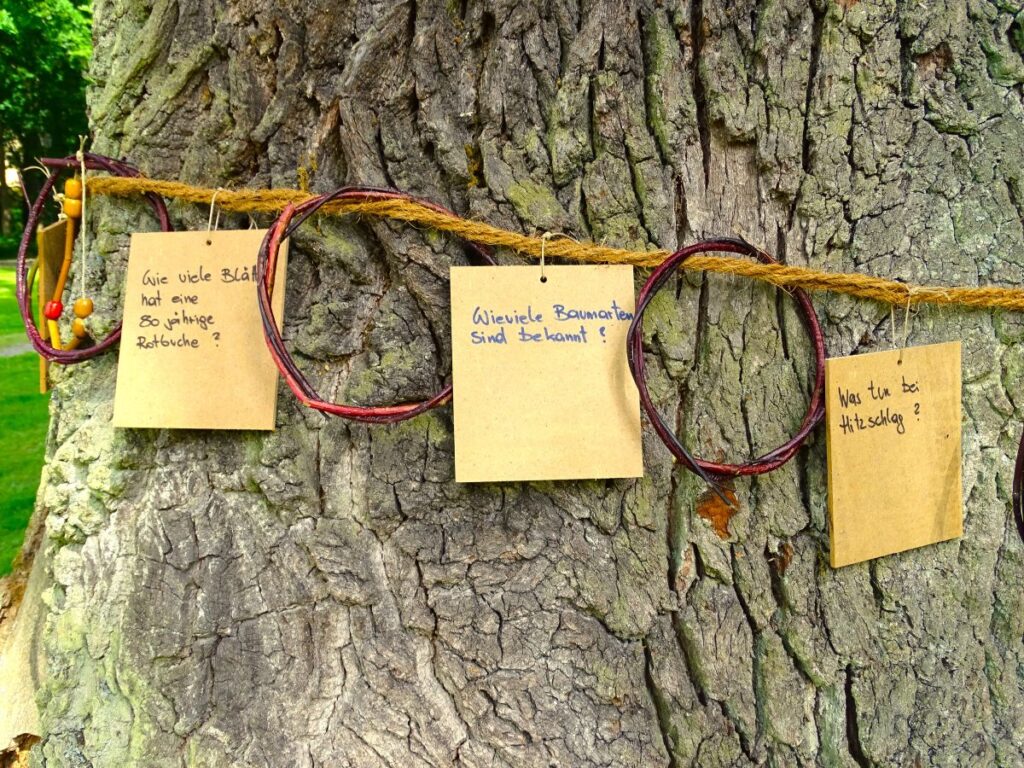 Wie viele Blätt
hat eine
80 jährige
Rotbuche ?
Wieviele Baumarten
sind bekannt ?
Was tun bei
Hitzschlag ?